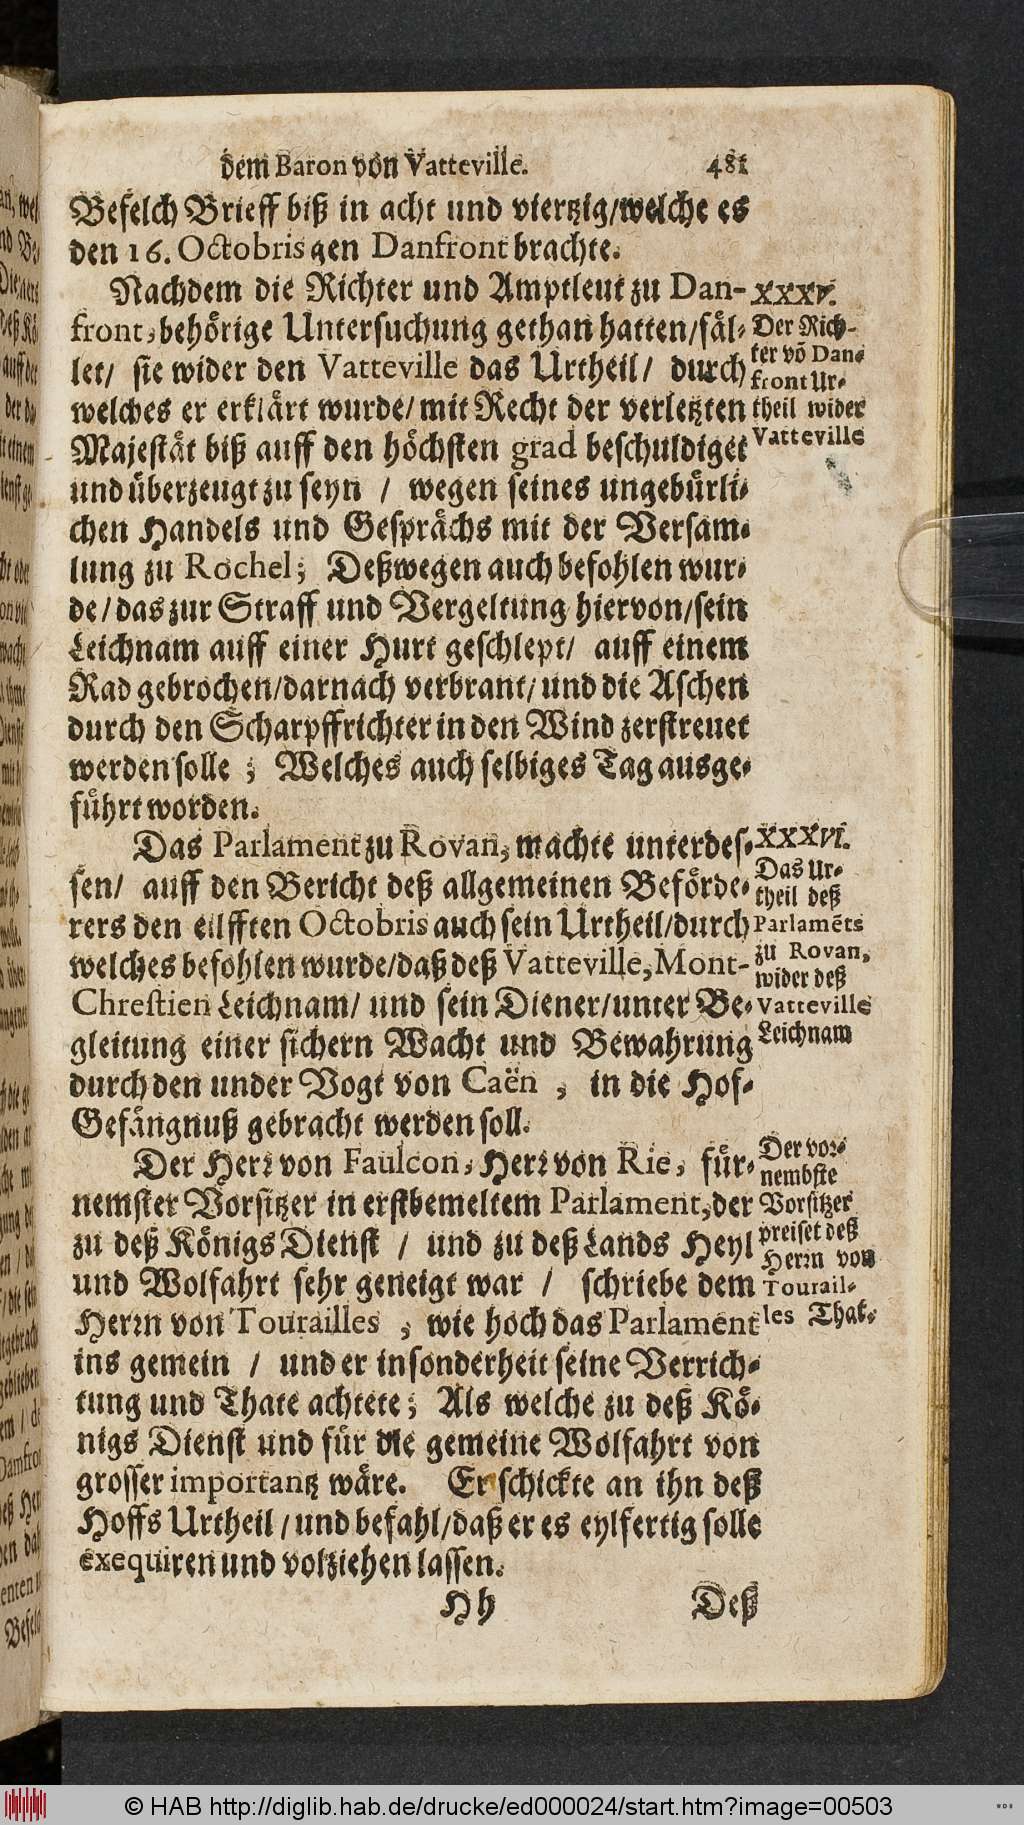 dem Baron von Vatteville. 481
Befelch Brieff biß in acht und viertzig/welche es
den 16. Octobris gen Danfront brachte.
Nachdem die Richter und Amptleut zu Dan-
front, behörige Untersuchung gethan hatten/fäl-
let/ sie wider den Vatteville das Urtheil/ durch
welches er erklärt wurde/mit Recht der verletzten
Majestät biß auff den höchsten grad beschuldiget
und überzeugt zu seyn / wegen seines ungebürli-
chen Handels und Gesprächs mit der Versam-
lung zu Rochel; Deßwegen auch befohlen wur-
de/das zur Straff und Vergeltung hiervon/sein
Leichnam auff einer Hurt geschlept/ auff einem
Rad gebrochen/darnach verbrant/und die Aschen
durch den Scharpffrichter in den Wind zerstreuet
werden solle ; Welches auch selbiges Tag ausge-
führt worden.
XXXV.
Der Rich-
ter võ Dan-
front Ur-
theil wider
Vatteville
Das Parlament zu Rovan, machte unterdes-
sen/ auff den Bericht deß allgemeinen Beförde-
rers den eilfften Octobris auch sein Urtheil/durch
welches befohlen wurde/daß deß Vatteville, Mont-
Chrestien Leichnam/ und sein Diener/unter Be-
gleitung einer sichern Wacht und Bewahrung
durch den under Vogt von Caën , in die Hof-
Gefängnuß gebracht werden soll.
XXXVI.
Das Ur-
theil deß
Parlamẽts
zu Rovan,
wider deß
Vatteville
Leichnam
Der Herr von Faulcon, Herr von Rie, für-
nemster Vorsitzer in erstbemeltem Parlament, der
zu deß Königs Dienst / und zu deß Lands Heyl
und Wolfahrt sehr geneigt war / schriebe dem
Herrn von Tourailles , wie hoch das Parlament
ins gemein / und er insonderheit seine Verrich-
tung und Thate achtete; Als welche zu deß Kö-
nigs Dienst und für die gemeine Wolfahrt von
grosser importantz wäre. Er schickte an ihn deß
Hoffs Urtheil/und befahl/daß er es eylfertig solle
exequiren und volziehen lassen.
Der vor-
nembste
Vorsitzer
preiset deß
Herrn von
Tourail-
les That.
Hh Deß
© HAB http://diglib.hab.de/drucke/ed000024/start.htm?image=00503